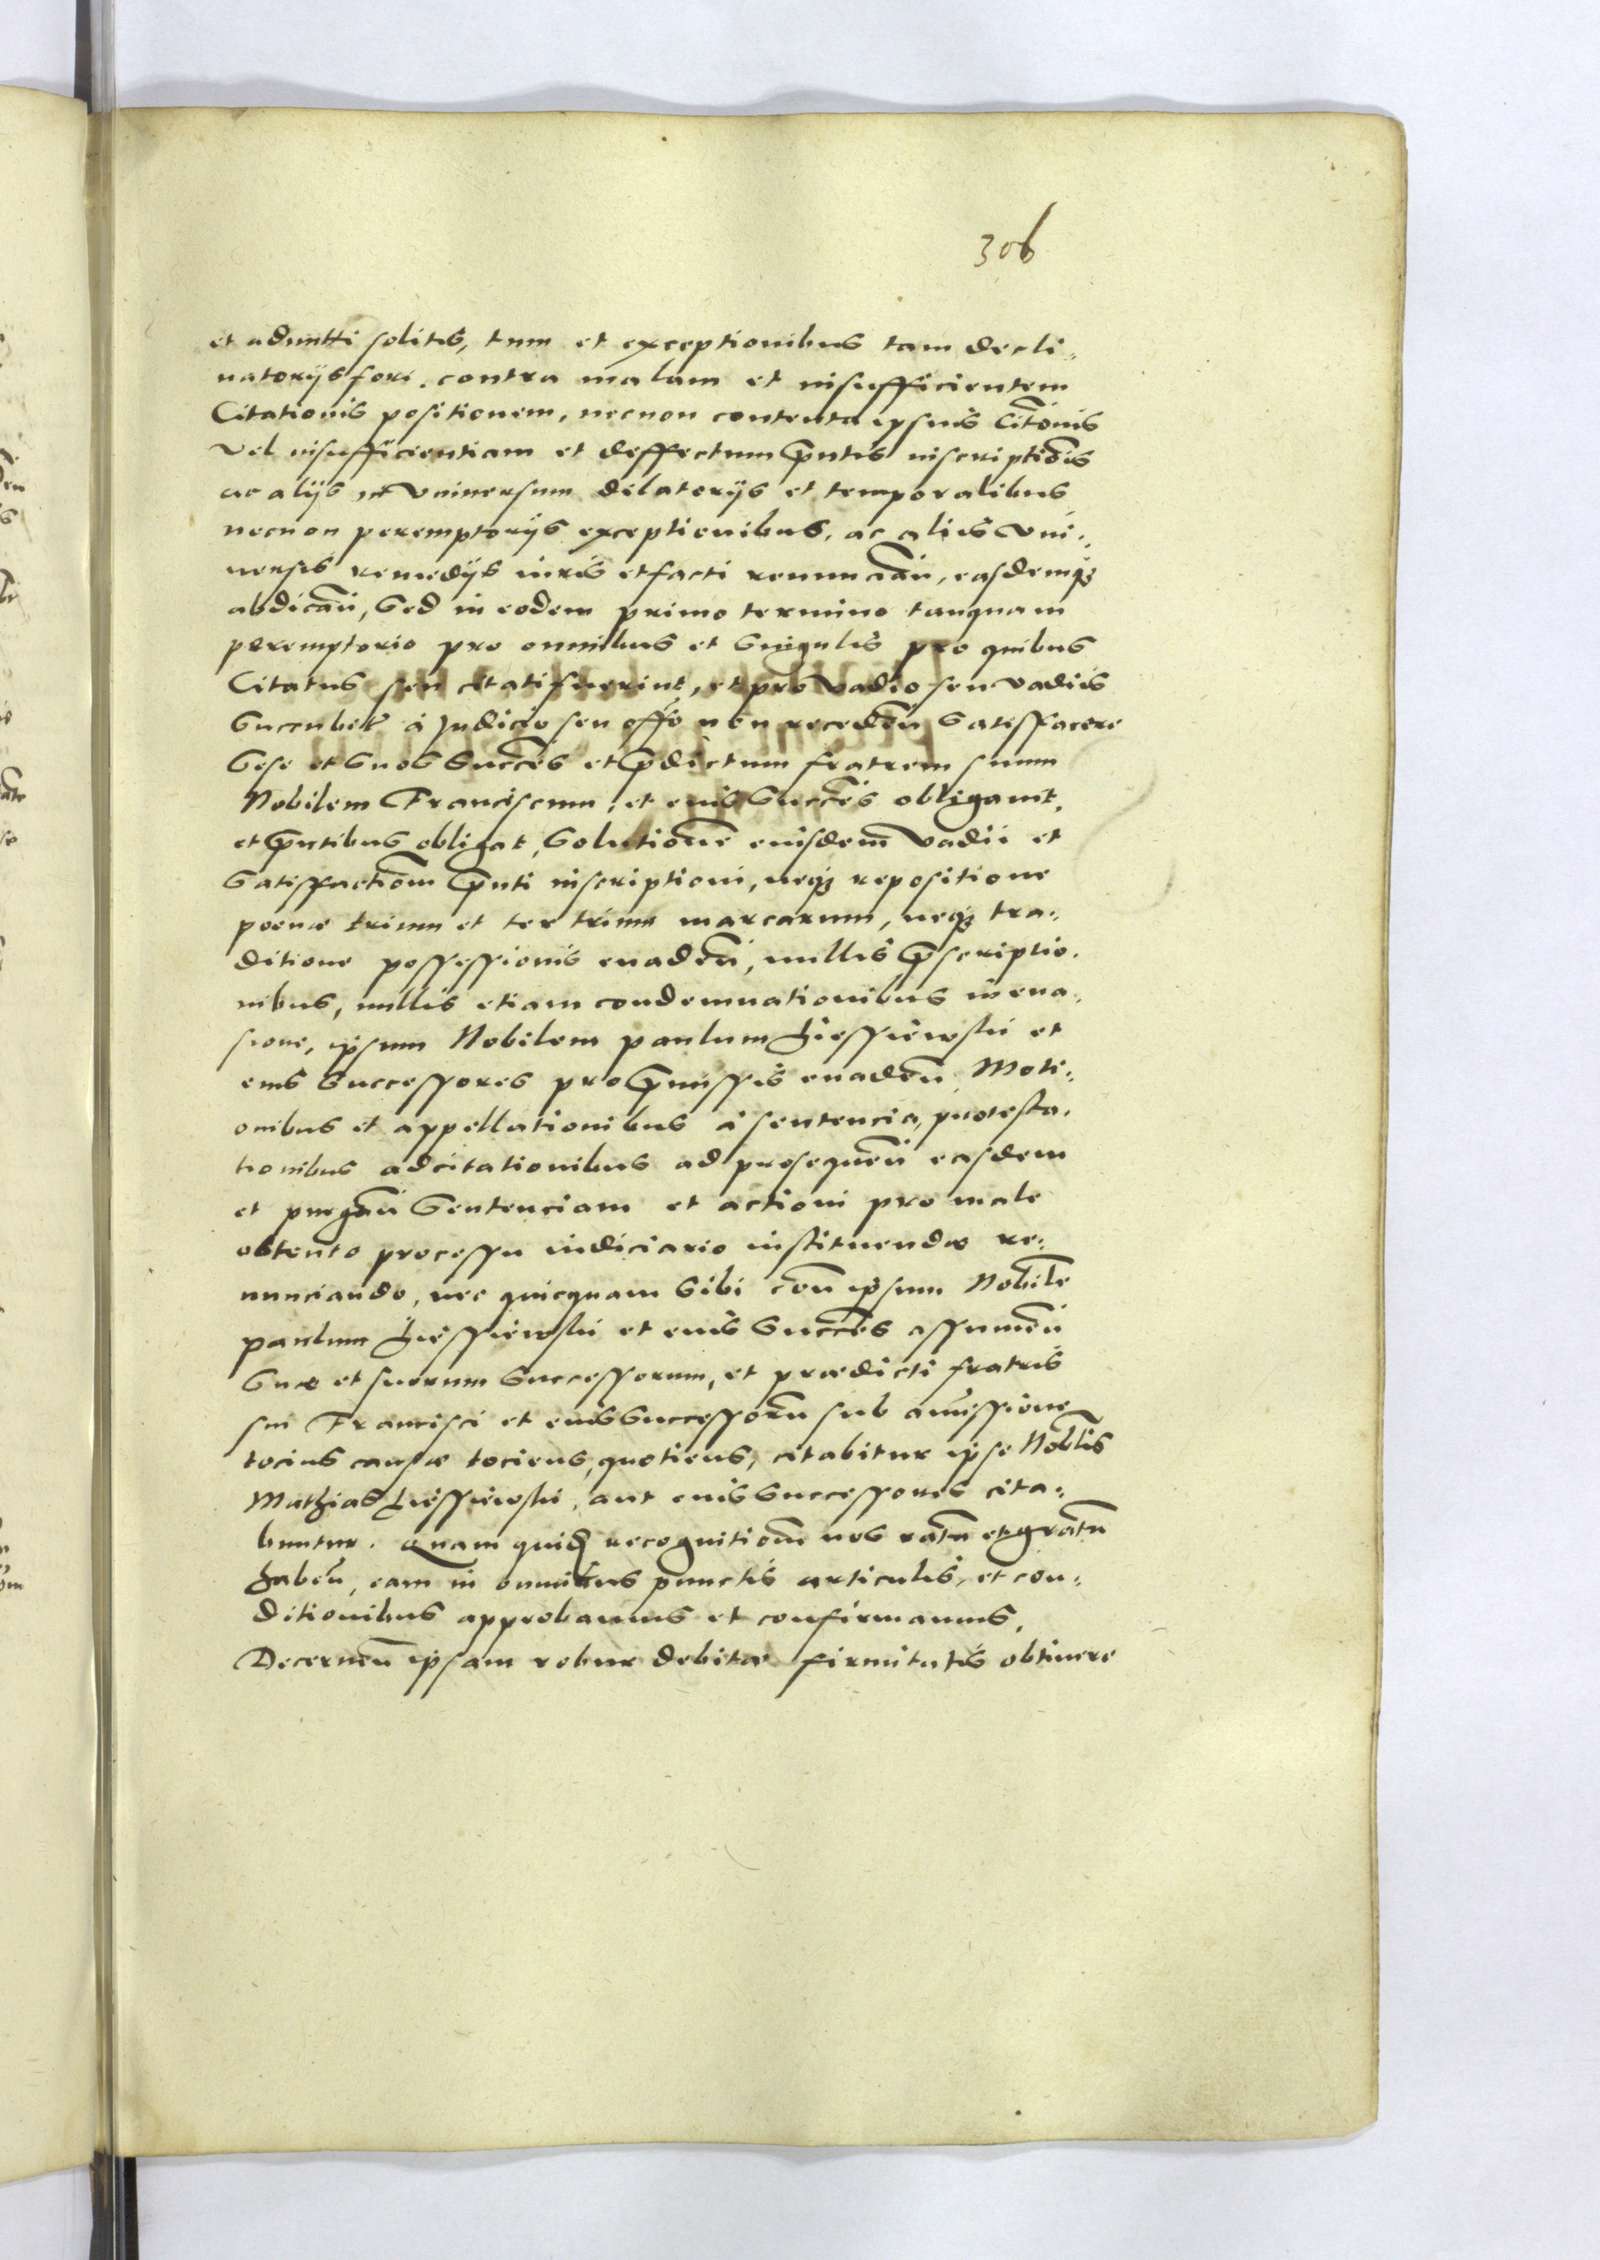 306
et admitti solitis, tum et exceptionibus tam decli,
natorijs fori. contra malam et insufficientem
Citationis positionem, necnon contenta ipsius Citõnis
vel insufficientiam et deffectum p̃ntis inscriptiõis
ac alijs in vniuersum dilatorijs et temporalibus
necnon peremptorijs exceptionibus, ac alijs vni,
uersis remedijs iuris et facti renunciañ, easdemq̃
abdicañ, Sed in eodem primo termino tanquam
peremptorio pro omnibus et singulis pro quibus
Citatus seu citati fuerint, et pro vadio seu vadijs
succubet à Judicio seu offõ non receden̄ satisfacere
Sese et suos Succẽs et p̃dictum fratrem suum
Nobilem Franciscum, et eius Succẽs obligauit,
et p̃ntibus obligat, Solutione eiusdem vadii et
Satisfactiom̃ p̃nti inscriptioni, neq̃ repositione
poenae trium et ter trium marcarum, neq̃ tra,
ditione possessionis euaden̄, nullis p̃scriptio,
nibus, nullis etiam condemnationibus in eua,
sione, ipsum Nobilem paulum Liessiewski et
eius Successores pro p̃missis euaden̄ Moti,
onibus et appellationibus à sentencia, protesta,
tionibus adcitationibus ad prosequen̄ easdem
et purgañ Sentenciam et actioni pro male
obtento processu iudiciario instituendae re,
nunciando, nec quicquam Sibi con̄ ipsum Nobilẽ
paulum Liessiewski et eius Succẽs assumen̄
Suae et suorum Successorum, et praedicti fratris
sui Francisci et eius Successorũ sub amissione
tocius causae tociens, quotiens, citabitur ipse Nobĩlis
Mathias Liessiewski, aut eius Successores cita,
buntur. Quam quid̃ recognitiom̃ nos ratũ et gratũ
haben̄, eam in omnibus punctis articulis, et con,
ditionibus approbamus et confirmamus,
Decernen̄ ipsam robur debitae firmitatis obtinere